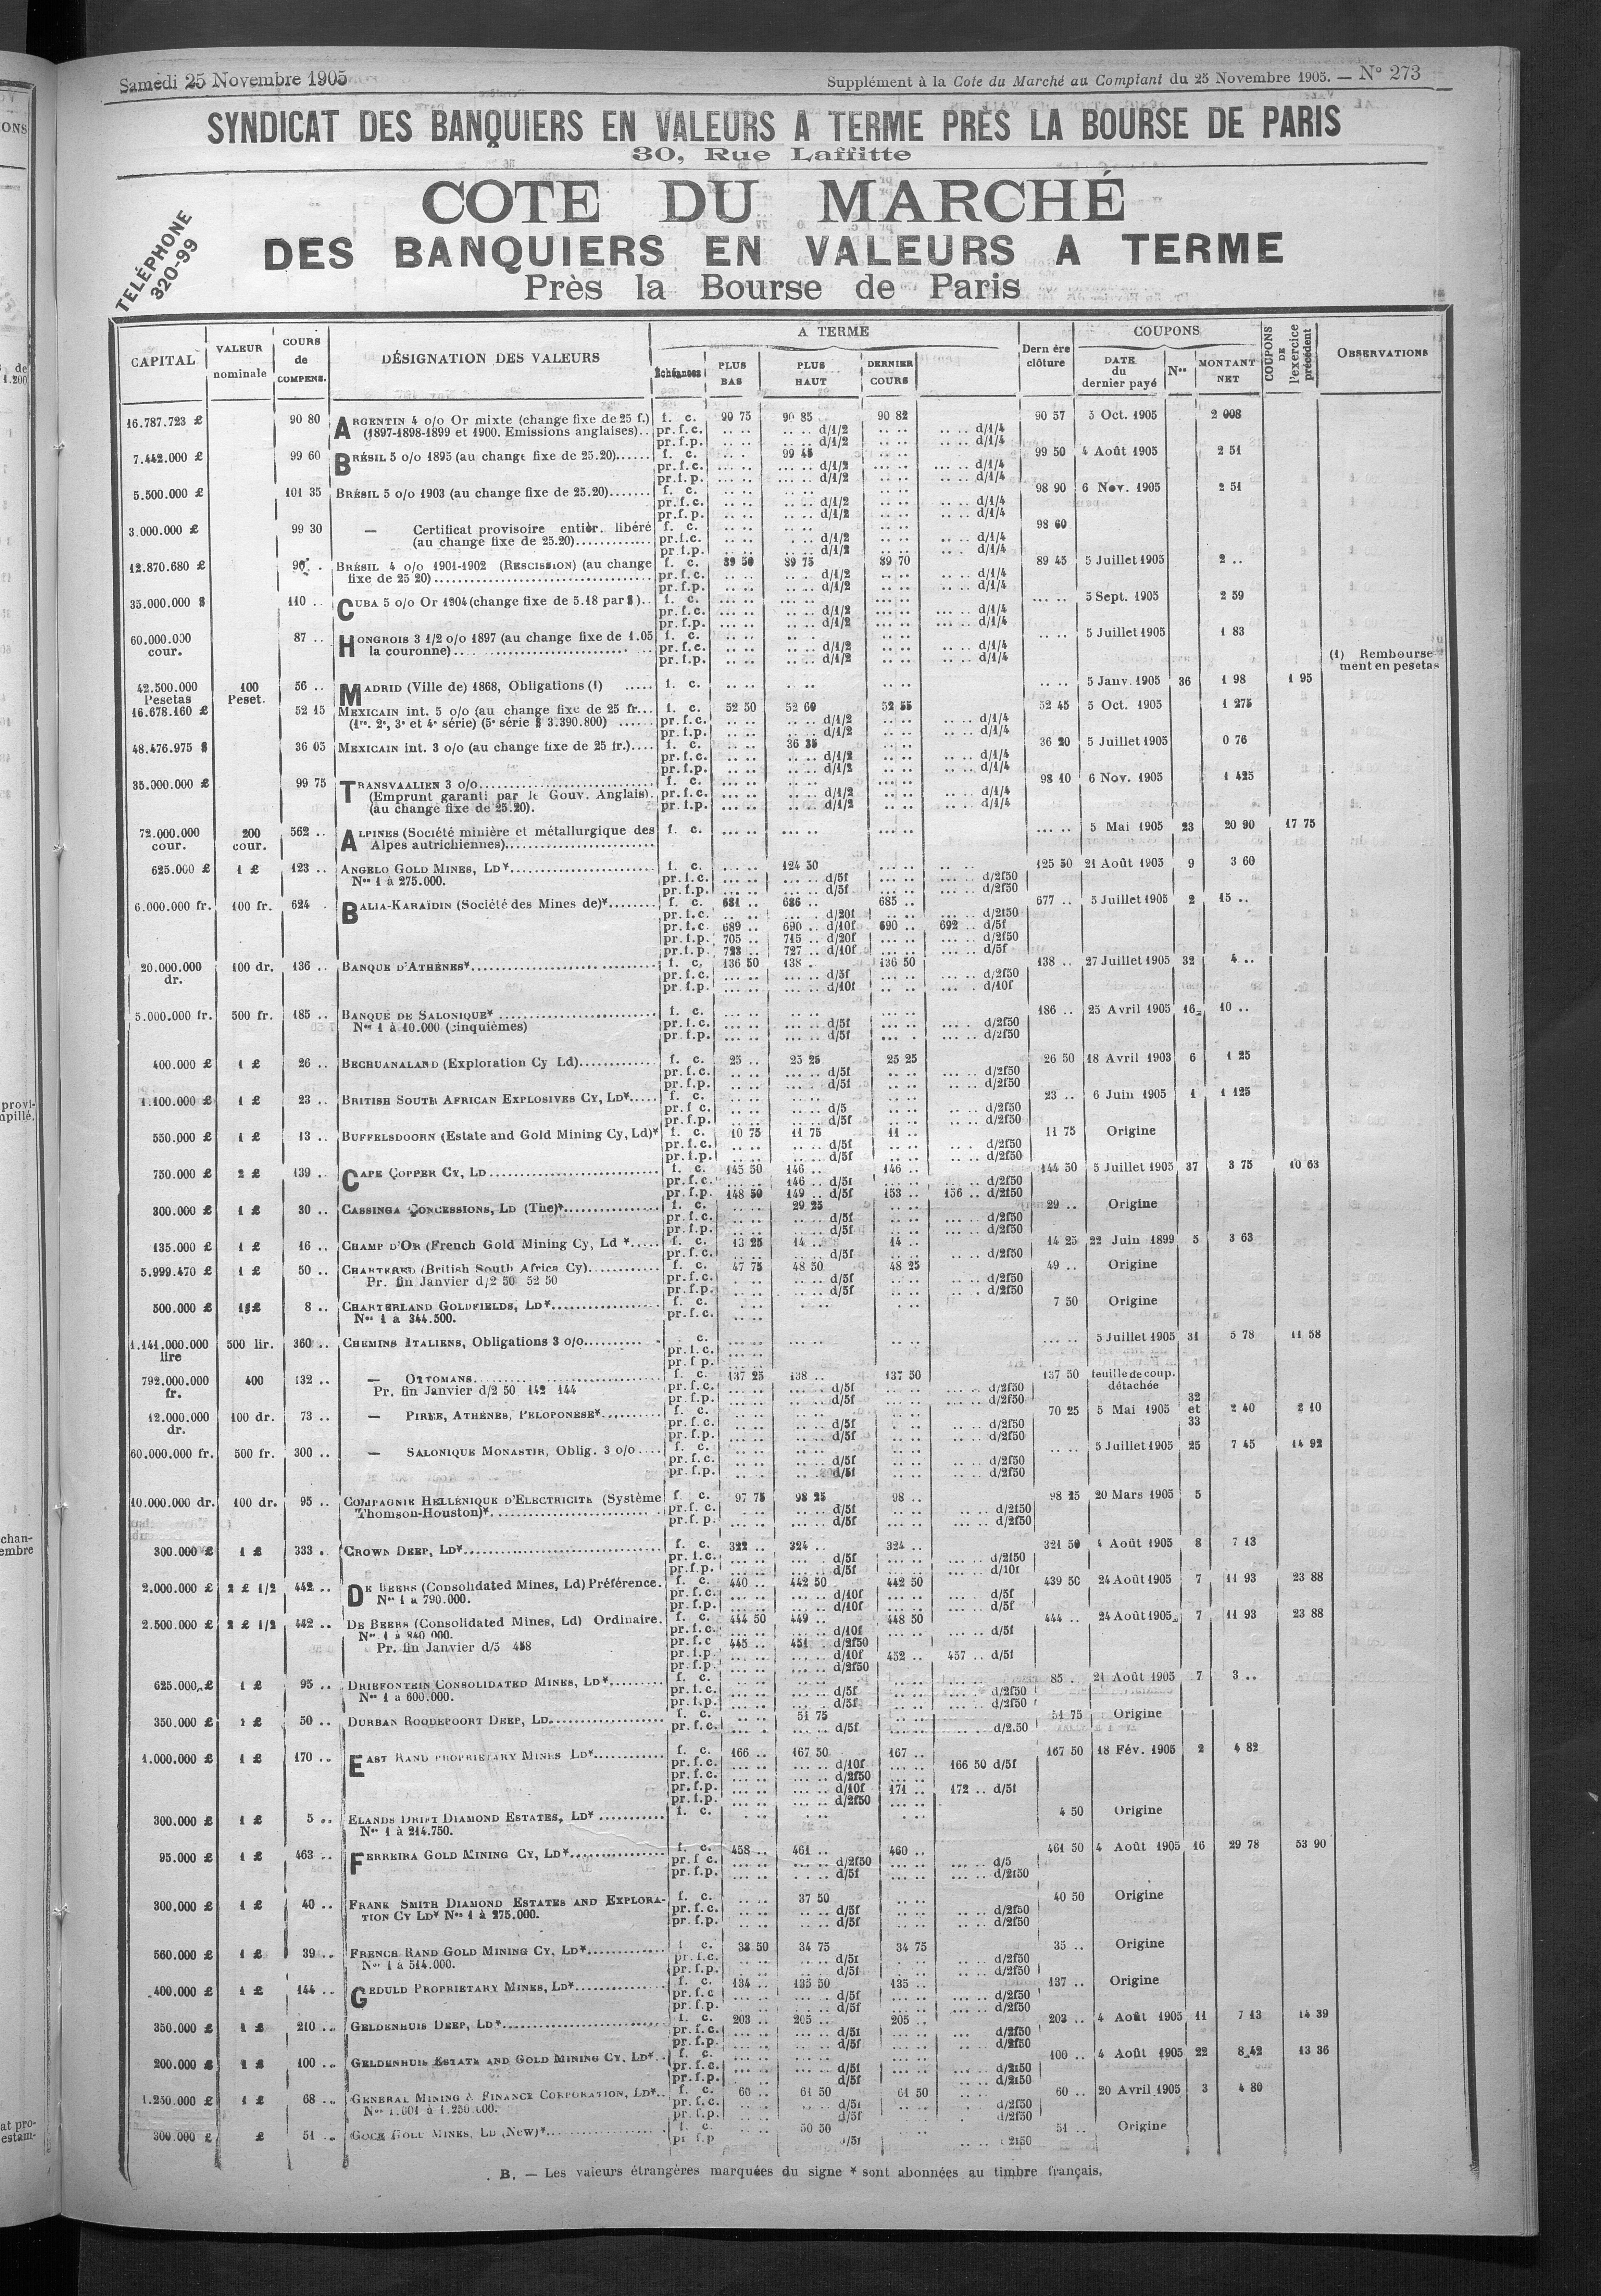 Samedi 25 Novembre 1905 Supplément à la Cote du Marché au Comptant du 25 Novembre 1905. — N° 273
SYNDICAT DES BANQUIERS EN VALEURS A TERME PRÈS LA BOURSE DE PARIS
30, Rue Laffitte
TELÉPHONE
320-99
COTE DU MARCHÉ
DES BANQUIERS EN VALEURS A TERME
Près la Bourse de Paris
CAPITAL | VALEUR nominale | COURS de COMPENS. | DÉSIGNATION DES VALEURS | A TERME | Échéances | PLUS BAS | PLUS HAUT | DERNIER COURS | Dern ère clôture | COUPONS | DATE du dernier payé | Nos | MONTANT NET | COUPONS DE l'exercice précédent | OBSERVATIONS
16.787.723 £ 90 80 ARGENTIN 4 o/o Or mixte (change fixe de 25 f.) f. c. 90 75 90 85 90 82 90 57 5 Oct. 1905 2 008
(1897-1898-1899 et 1900. Emissions anglaises).. pr. f. c. .. .. .. .. d/1/2 .. .. .. .. d/1/4
pr. f. p. .. .. .. .. d/1/2 .. .. .. .. d/1/4
7.442.000 £ 99 60 BRÉSIL 5 o/o 1895 (au change fixe de 25.20)...... f. c. .. .. 99 45 .. .. 99 50 4 Août 1905 2 51
pr. f. c. ... .. ... .. d/1/2 ... .. ... .. d/1/4
pr. f. p. ... .. ... .. d/1/2 ... .. ... .. d/1/4
5.500.000 £ 101 35 BRÉSIL 5 o/o 1903 (au change fixe de 25.20)....... f. c. .. .. .. .. .. .. 98 90 6 Nov. 1905 2 51
pr. f. c. .. .. .. .. d/1/2 .. .. .. .. d/1/4
pr. f. p. .. .. .. .. d/1/2 .. .. .. .. d/1/4
3.000.000 £ 99 30 — Certificat provisoire entièr. libéré f. c. .. .. .. .. .. .. 98 60
(au change fixe de 25.20)............. pr. f. c. .. .. .. .. d/1/2 .. .. .. .. d/1/4
pr. f. p. .. .. .. .. d/1/2 .. .. .. .. d/1/4
12.870.680 £ 90 .. BRÉSIL 4 o/o 1901-1902 (RESCISSION) (au change f. c. 89 50 89 75 89 70 89 45 5 Juillet 1905 2 ..
fixe de 25 20).................. pr. f. c. .. .. .. .. d/1/2 .. .. .. .. d/1/4
pr. f. p. .. .. .. .. d/1/2 .. .. .. .. d/1/4
35.000.000 $ 110 .. CUBA 5 o/o Or 1904 (change fixe de 5.18 par $).. f. c. ... .. ... .. ... .. ... .. 5 Sept. 1905 2 59
pr. f. c. ... .. ... .. d/1/2 ... .. ... .. d/1/4
pr. f. p. ... .. ... .. d/1/2 ... .. ... .. d/1/4
60.000.000 87 .. HONGROIS 3 1/2 o/o 1897 (au change fixe de 1.05 f. c. .. .. .. .. .. .. .. .. 5 Juillet 1905 1 83
cour. la couronne).................. pr. f. c. .. .. .. .. d/1/2 .. .. .. .. d/1/4
pr. f. p. .. .. .. .. d/1/2 .. .. .. .. d/1/4 (1) Rembourse-
ment en pesetas
42.500.000 100 56 .. MADRID (Ville de) 1868, Obligations (1) ..... f. c. .. .. .. .. .. .. .. .. 5 Janv. 1905 36 1 98 1 95
Pesetas Peset.
16.678.160 £ 52 15 MEXICAIN int. 5 o/o (au change fixe de 25 fr... f. c. 52 50 52 60 52 55 52 45 5 Oct. 1905 1 275
(1re. 2e, 3e et 4e série) (5e série $ 3.390.800) ...... pr. f. c. .. .. .. .. d/1/2 .. .. .. .. d/1/4
pr. f. p. .. .. .. .. d/1/2 .. .. .. .. d/1/4
48.476.975 $ 36 05 MEXICAIN int. 3 o/o (au change fixe de 25 fr.).... f. c. .. .. 36 35 .. .. 36 20 5 Juillet 1905 0 76
pr. f. c. .. .. .. .. d/1/2 .. .. .. .. d/1/4
pr. f. p. .. .. .. .. d/1/2 .. .. .. .. d/1/4
35.000.000 £ 99 75 TRANSVAALIEN 3 o/o.................. f. c. ... .. ... .. ... .. 98 10 6 Nov. 1905 1 425
(Emprunt garanti par le Gouv. Anglais). pr. f. c. ... .. ... .. d/1/2 ... .. ... .. d/1/4
(au change fixe de 25.20). pr. f. p. ... .. ... .. d/1/2 ... .. ... .. d/1/4
72.000.000 200 562 .. ALPINES (Société minière et métallurgique des f. c. ... .. ... .. ... .. ... .. 5 Mai 1905 23 20 90 17 75
cour. cour. Alpes autrichiennes)..................
625.000 £ 1 £ 123 .. ANGELO GOLD MINES, LD*.................. f. c. ... .. 124 50 ... .. 125 50 21 Août 1905 9 3 60
Nos 1 à 275.000. pr. f. c. ... .. ... .. d/5f ... .. ... .. d/2f50
pr. f. p. ... .. ... .. d/5f ... .. ... .. d/2f50
6.000.000 fr. 100 fr. 624 . BALIA-KARAÏDIN (Société des Mines de)*........ f. c. 681 .. 686 .. 685 .. 677 .. 5 Juillet 1905 2 15 ..
pr. f. c. .. .. ... .. d/20f ... .. ... .. d/2f50
pr. f. c. 689 .. 690 .. d/10f 690 .. 692 .. d/5f
pr. f. p. 705 .. 715 .. d/20f ... .. ... .. d/2f50
pr. f. p. 723 .. 727 .. d/10f ... .. ... .. d/5f
20.000.000 100 dr. 136 .. BANQUE D'ATHÈNES*.................. f. c. 136 50 138 . 136 50 138 .. 27 Juillet 1905 32 4 ..
dr. pr. f. c. ... .. ... .. d/5f .. .. ... .. d/2f50
pr. f. p. ... .. ... .. d/10f .. .. ... . d/10f
5.000.000 fr. 500 fr. 185 .. BANQUE DE SALONIQUE* .................. f. c. ... .. ... .. ... .. 186 .. 25 Avril 1905 16 10 ..
Nos 1 à 10.000 (cinquièmes) pr. f. c. ... .. ... .. d/5f ... .. ... .. d/2f50
pr. f. p. ... .. ... .. d/5f ... . ... .. d/2f50
400.000 £ 1 £ 26 .. BECHUANALAND (Exploration Cy Ld)............ f. c. 25 .. 25 25 25 25 26 50 18 Avril 1903 6 1 25
pr. f. c. .. .. ... .. d/5f .. .. ... .. d/2f50
pr. f. p. .. .. .. .. d/5f .. .. ... .. d/2f50
1.100.000 £ 1 £ 23 .. BRITISH SOUTH AFRICAN EXPLOSIVES CY, LD*..... f. c. .. .. .. .. .. .. 23 .. 6 Juin 1905 1 1 125
pr. f c. .. .. .. .. d/5 .. .. .. .. d/2f50
pr. f. p. .. .. .. .. d/5f .. .. .. .. d/2f50
550.000 £ 1 £ 13 .. BUFFELSDOORN (Estate and Gold Mining Cy, Ld)* f. c. 10 75 11 75 11 .. 11 75 Origine
pr. f. c. .. .. .. .. d/5f .. .. .. . d/2f50
pr. f. p. .. .. .. .. d/5f .. .. .. .. d/2f50
750.000 £ 2 £ 139 .. CAPE COPPER CY, LD.................. f. c. 145 50 146 .. 146 .. 144 50 5 Juillet 1905 37 3 75 10 63
pr. f. c. ... .. 146 .. d/5f ... .. ... .. d/2f50
pr. f. p. 148 50 149 .. d/5f 153 .. 156 .. d/2f50
300.000 £ 1 £ 30 .. CASSINGA CONCESSIONS, LD (The)*................ f. c. .. .. 29 25 .. .. 29 .. Origine
pr. f. c. .. .. .. .. d/5f .. .. ... .. d/2f50
pr. f. p. .. .. .. .. d/5f .. .. ... .. d/2f50
135.000 £ 1 £ 16 .. CHAMP D'OR (French Gold Mining Cy, Ld *..... f. c. 13 25 14 .. 14 .. 14 25 22 Juin 1899 5 3 63
pr. f. c. .. .. .. .. d/5f .. .. .. .. d/2f50
5.999.470 £ 1 £ 50 .. CHARTERED (British South Africa Cy)............ f. c. 47 75 48 50 48 25 49 .. Origine
Pr. fin Janvier d/2 50 52 50 pr. f. c. . .. .. .. d/5f .. .. .. .. d/2f50
pr. f. p. .. .. .. .. d/5f .. .. .. .. d/2f50
500.000 £ 1 £ 8 .. CHARTERLAND GOLDFIELDS, LD*.................. f. c. . .. . .. . .. 7 50 Origine
Nos 1 à 344.500. pr. f. c. .. ..
1.141.000.000 500 lir. 360 .. CHEMINS ITALIENS, Obligations 3 o/o.......... . c. ... .. ... .. .. .. ... .. 5 Juillet 1905 31 5 78 11 58
lire pr. f. c. ... ..
pr. f p. ... ..
792.000.000 400 132 .. — OTTOMANS.................. f. c. 137 25 138 .. 137 50 137 50 feuille de coup.
fr. Pr. fin Janvier d/2 50 142 144 pr. f. c. ... .. ... .. d/5f ... .. ... .. d/2f50 détachée
pr. f. p. ... .. ... .. d/5f ... .. ... .. d/2f50 32
12.000.000 100 dr. 73 .. — PIRÉE, ATHÈNES, PÉLOPONÈSE*.......... f. c. .. .. .. .. .. .. 70 25 5 Mai 1905 et 2 40 2 10
dr. pr. f. c. .. .. .. .. d/5f .. .. ... .. d/2f50 33
pr. f. p. .. .. .. .. d/5f .. .. .. .. d/2f50
60.000.000 fr. 500 fr. 300 .. — SALONIQUE MONASTIR, Oblig. 3 o/o .... f. c. .. .. .. .. .. .. .. .. 5 Juillet 1905 25 7 45 14 92
pr. f. c. .. .. .. .. d/5f .. .. .. .. d/2f50
pr. f. p. .. .. .. d/5f .. .. .. .. d/2f50
10.000.000 dr. 100 dr. 95 .. COMPAGNIE HELLÉNIQUE D'ELECTRICITÉ (Système f. c. 97 75 98 25 98 .. 98 25 20 Mars 1905 5
Thomson-Houston)*.................. pr. f. c. . .. .. .. d/5f .. .. d/2f50
pr. f. p. .. .. .. .. d/5f .. .. ... .. d/2f50
300.000 £ 1 £ 333 . CROWN DEEP, LD*.................. f. c. 322 .. 324 .. 324 .. 321 50 4 Août 1905 8 7 13
pr. f. c. ... .. ... .. d/5f ... .. ... .. d/2f50
pr. f. p. ... .. ... .. d/5f ... .. ... .. d/10f
2.000.000 £ 2 £ 1/2 442 .. DE BEERS (Consolidated Mines, Ld) Préférence. f. c. 440 .. 442 50 442 50 439 50 24 Août 1905 7 11 93 23 88
Nos 1 à 790.000. pr. f. c. ... .. ... .. d/10f ... .. d/5f
pr. f. p. ... .. ... .. d/10f ... .. d/5f
2.500.000 £ 2 £ 1/2 442 .. DE BEERS (Consolidated Mines, Ld) Ordinaire. f. c. 444 50 449 .. 448 50 444 .. 24 Août 1905 7 11 93 23 88
Nos 1 à 840 000. pr. f. c. ... .. ... .. d/10f ... .. ... .. d/5f
Pr. fin Janvier d/5 458 pr. f. c 445 .. 451 . d/2f50
pr. f. p. ... .. ... .. d/10f 452 .. 457 .. d/5f
pr. f. p. ... .. ... .. d/2f50
625.000 £ 1 £ 95 .. DRIEFONTEIN CONSOLIDATED MINES, LD*........ f. c. .. .. ... .. ... .. 85 .. 21 Août 1905 7 3 ..
Nos 1 à 600.000. pr. f. c. ... .. ... .. d/5f .. .. ... . d/2f50
pr. f. p. ... .. ... .. d/5f .. .. ... .. d/2f50
350.000 £ 1 £ 50 .. DURBAN ROODEPOORT DEEP, LD.................. f. c. .. .. 51 75 .. .. 51 75 Origine
pr. f. c. ... . ... .. d/5f ... .. .. .. d/2.50
1.000.000 £ 1 £ 170 .. EAST RAND PROPRIETARY MINES LD*............ f. c. 166 .. 167 50 167 .. 167 50 18 Fév. 1905 2 4 82
pr. f. c. ... .. ... .. d/10f ... .. 166 50 d/5f
pr. f. c. ... .. ... .. d/2f50 ... ..
pr. f. p. ... .. ... .. d/10f 171 .. 172 .. d/5f
pr. f. p. ... .. ... .. d/2f50 ... ..
300.000 £ 1 £ 5 .. ELANDS DRIFT DIAMOND ESTATES, LD* ........... f. c. . .. . .. . .. 4 50 Origine
Nos 1 à 214.750.
95.000 £ 1 £ 463 .. FERREIRA GOLD MINING CY, LD*............... f. c. 458 .. 461 .. 460 .. 461 50 4 Août 1905 16 29 78 53 90
pr. f c ... .. ... .. d/2f50 ... .. ... .. d/5
pr. f. p. ... .. ... .. d/5f ... .. ... .. d/2f50
300.000 £ 1 £ 40 .. FRANK SMITH DIAMOND ESTATES AND EXPLORA- f. c. .. .. 37 50 .. .. 40 50 Origine
TION CY LD* Nos 1 à 275.000. pr. f. c. .. .. .. .. d/5f .. .. .. .. d/2f50
pr. f. p. .. .. .. .. d/5f .. .. .. .. d/2f50
560.000 £ 1 £ 39 .. FRENCH RAND GOLD MINING CY, LD*............ f c. 33 50 34 75 34 75 35 .. Origine
Nos 1 à 514.000. pr. f. c. .. .. .. .. d/5f . .. .. .. d/2f50
pr. f. p. .. .. .. .. d/5f .. .. .. .. d/2f50
400.000 £ 1 £ 144 .. GEDULD PROPRIETARY MINES, LD*.............. f. c. 134 .. 135 50 135 .. 137 .. Origine
pr. f. c ... .. ... . d/5f ... .. ... .. d/2f50
pr. f. p. .. .. ... . d/5f ... .. ... .. d/2f50
350.000 £ 1 £ 210 .. GELDENHUIS DEEP, LD*.................. f. c. 203 .. 205 .. 205 .. 203 .. 4 Août 1905 11 7 13 14 39
pr. f. c. ... .. ... .. d/5f ... .. ... d/2f50
pr. f. p. ... .. ... .. d/5f ... .. ... d/2f50
200.000 £ 1 £ 100 .. GELDENHUIS ESTATE AND GOLD MINING CY, LD*.. f. c. ... .. ... .. ... .. 100 .. 4 Août 1905 22 8 42 13 36
pr. f. c. ... .. ... .. d/5f ... .. ... .. d/2f50
pr. f. p. ... .. ... .. d/5f ... .. ... .. d/2f50
1.250.000 £ 1 £ 68 .. GENERAL MINING & FINANCE CORPORATION, LD*.. f. c. 60 .. 61 50 61 50 60 .. 20 Avril 1905 3 4 80
Nos 1.001 à 1.250.000. pr. f. c. .. .. .. .. d/5f .. .. . d/2f50
pr. f. p. .. .. .. .. d/5f . d/2f50
300.000 £ £ 51 .. GOCH GOLD MINES, LD (New)*.................. f. c. .. .. 50 50 .. .. 51 .. Origine
pr f. p d/5f .. .. 2f50
. B. — Les valeurs étrangères marquées du signe * sont abonnées au timbre français.